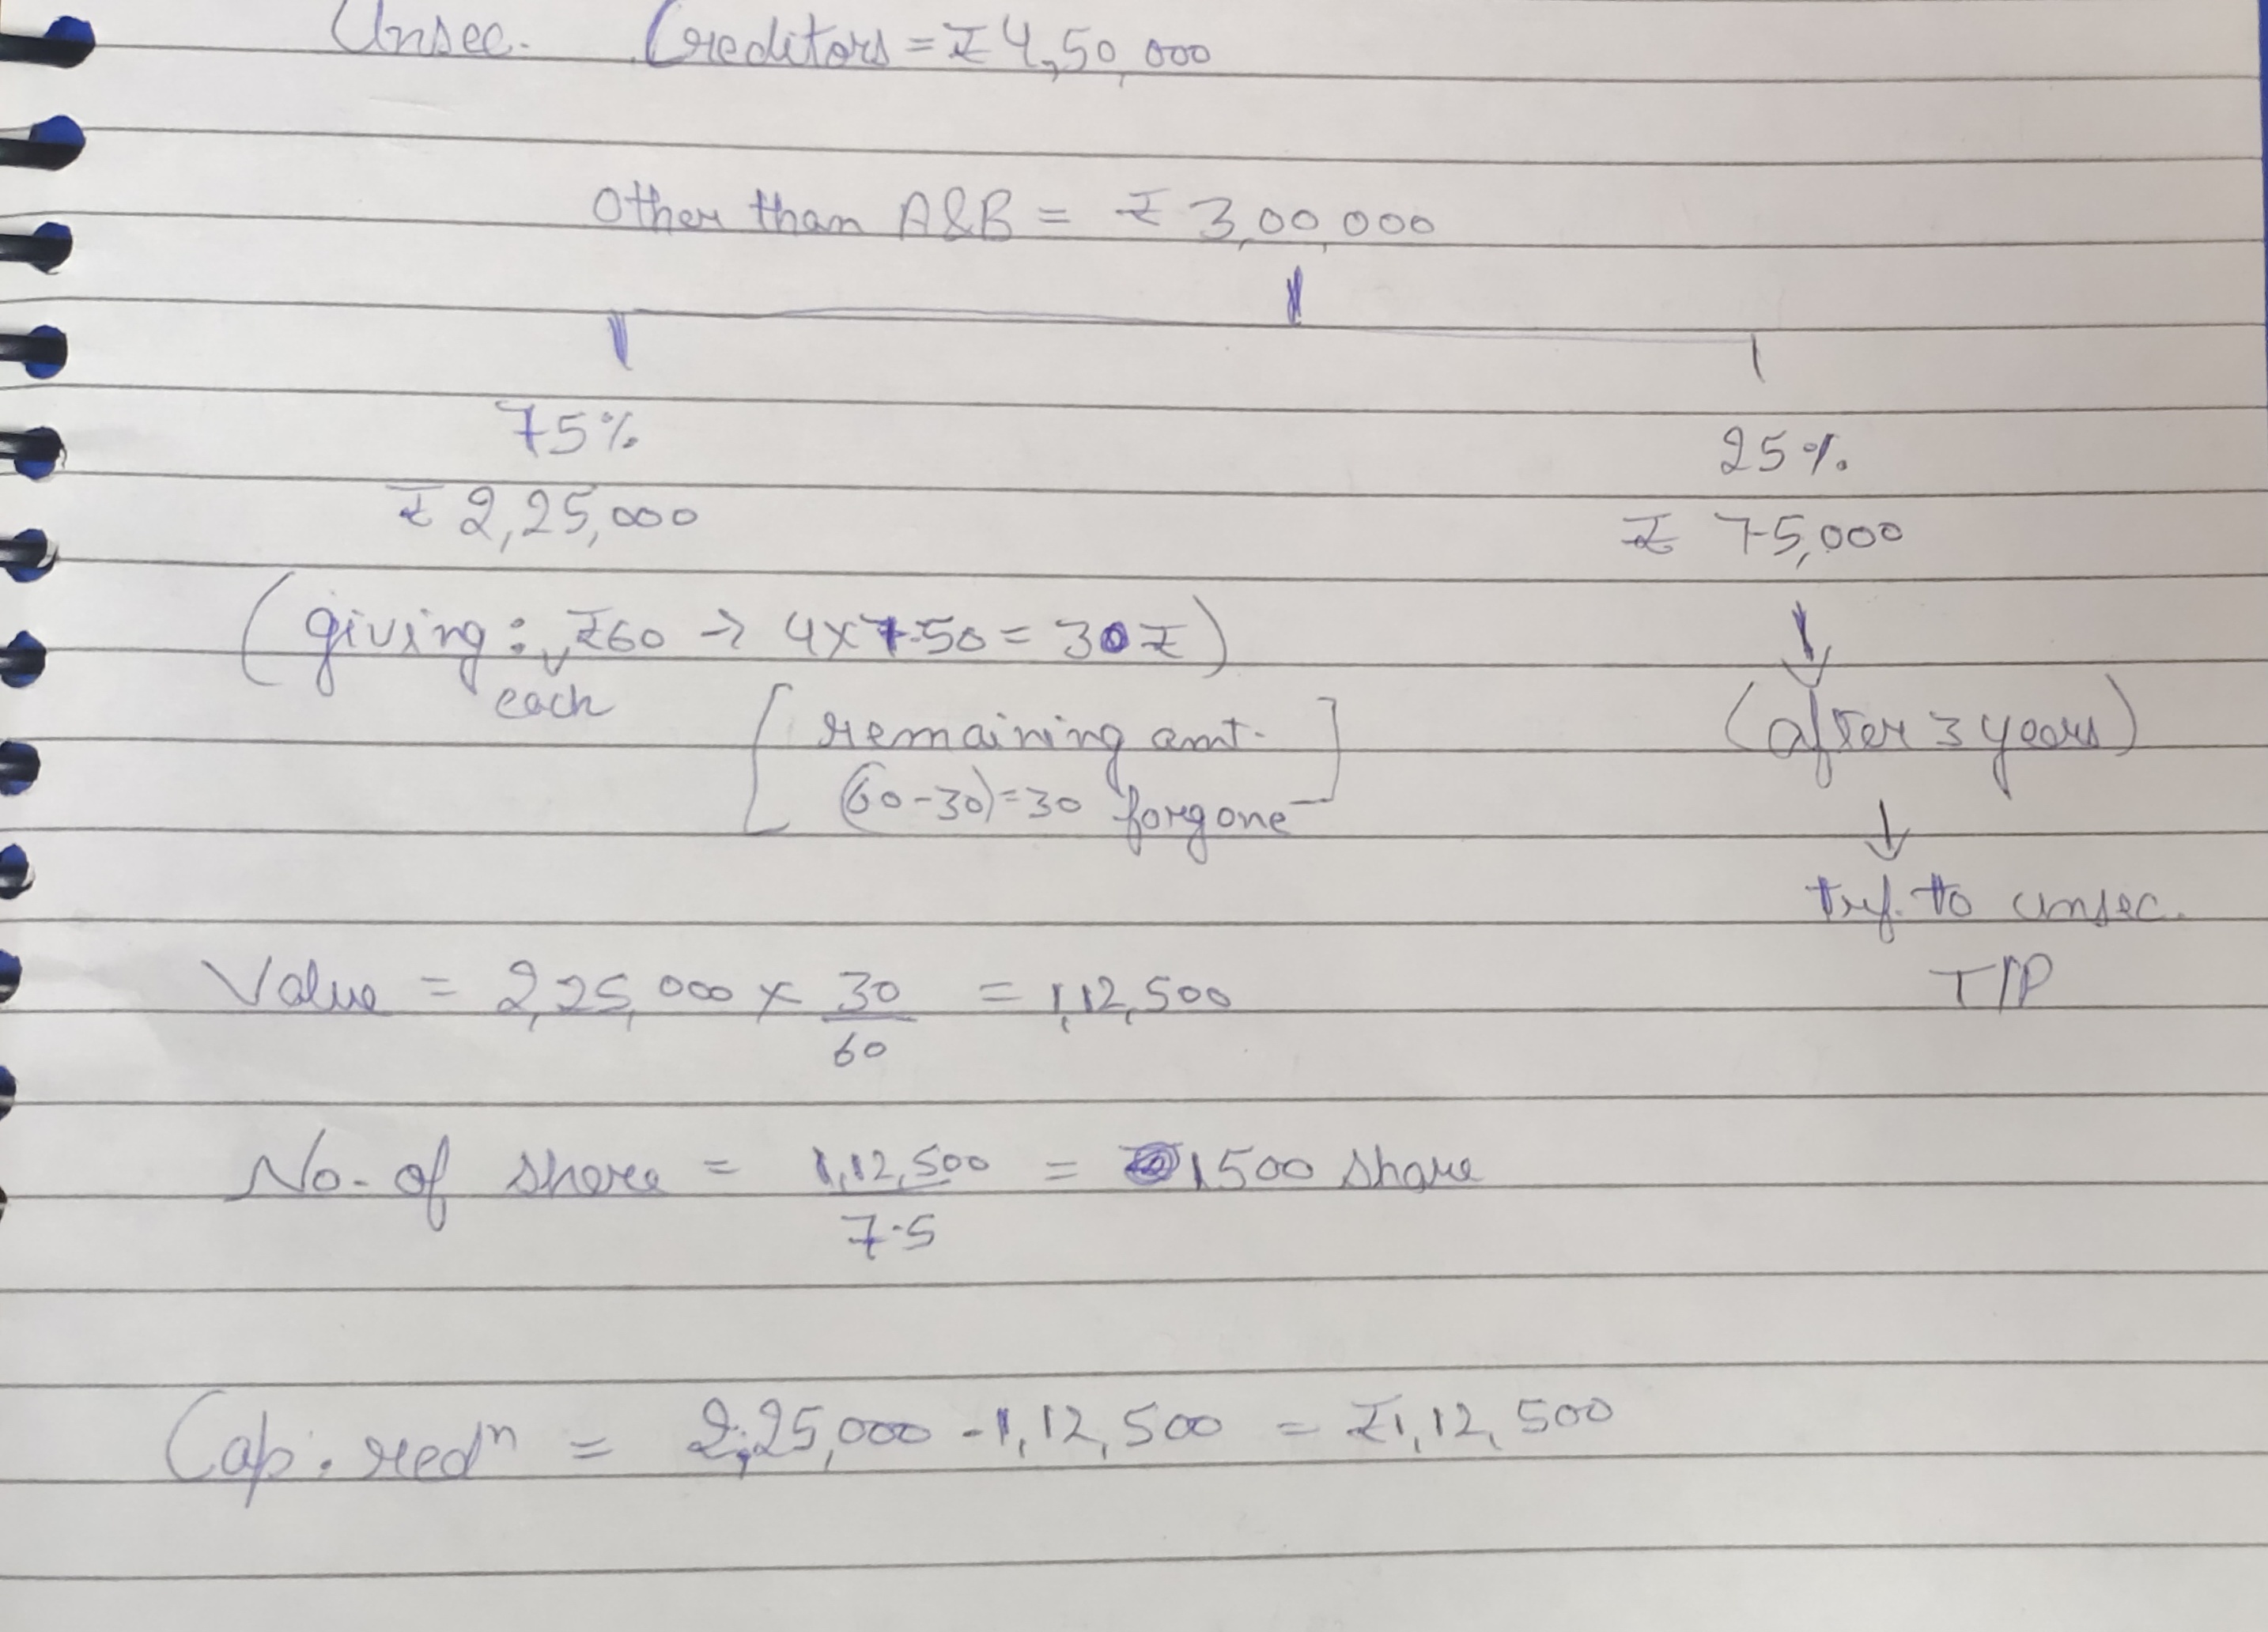 Unsec. Creditors = ₹ 4,50,000
Other than A&B = ₹ 3,00,000
75% 25%
₹ 2,25,000 ₹ 75,000
(giving: ₹60 → 4x7.50 = 30₹)
each
[remaining amt. (after 3 years)
(60-30)=30 forgone]
trf. to unsec.
T/P
Value = 2,25,000 x 30/60 = 1,12,500
No. of share = 1,12,500/7.5 = 1500 share
Cap. redⁿ = 2,25,000 - 1,12,500 = ₹1,12,500